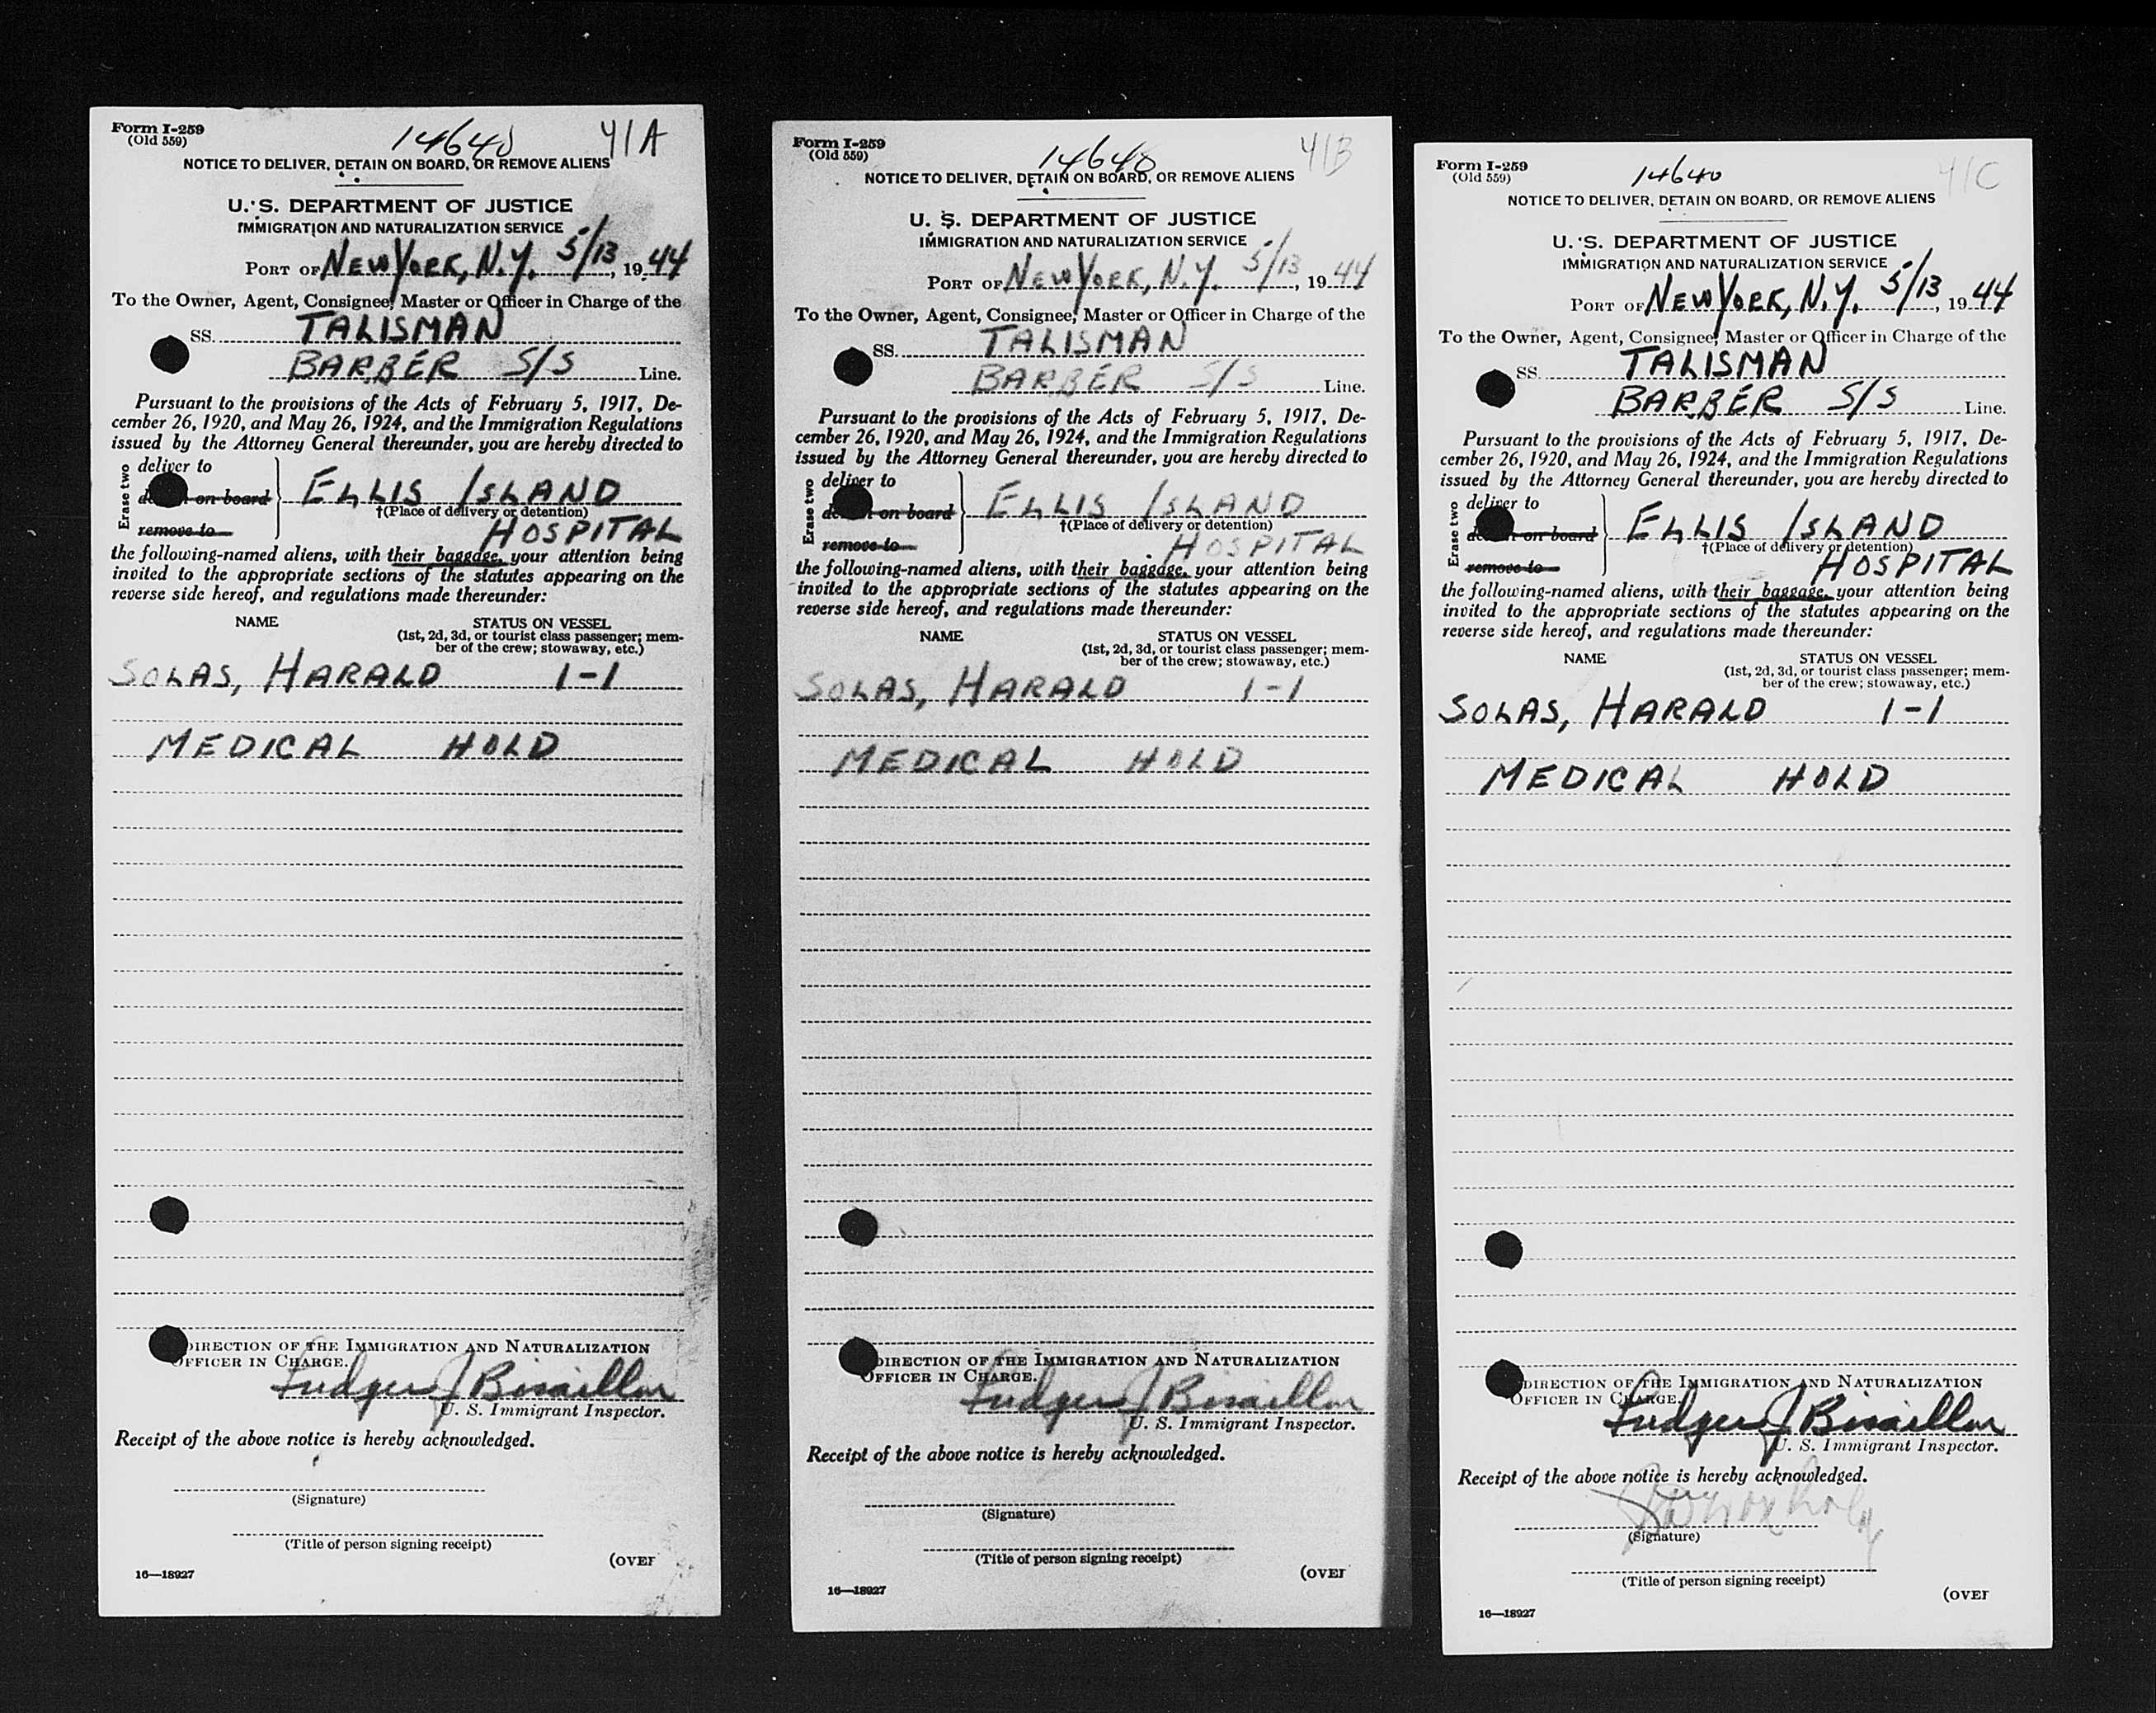 Form I-259
(Old 559)
14640 41A
NOTICE TO DELIVER, DETAIN ON BOARD, OR REMOVE ALIENS
U. S. DEPARTMENT OF JUSTICE
IMMIGRATION AND NATURALIZATION SERVICE
PORT OF NEW YORK, N.Y. 5/13, 1944
To the Owner, Agent, Consignee, Master or Officer in Charge of the
SS. TALISMAN
BARBER S/S Line.
Pursuant to the provisions of the Acts of February 5, 1917, De-
cember 26, 1920, and May 26, 1924, and the Immigration Regulations
issued by the Attorney General thereunder, you are hereby directed to
Erase two
deliver to
on board
remove to
ELLIS ISLAND
†(Place of delivery or detention)
HOSPITAL
the following-named aliens, with their baggage, your attention being
invited to the appropriate sections of the statutes appearing on the
reverse side hereof, and regulations made thereunder:
NAME STATUS ON VESSEL
(1st, 2d, 3d, or tourist class passenger; mem-
ber of the crew; stowaway, etc.)
SOLAS, HARALD 1-1
MEDICAL HOLD
DIRECTION OF THE IMMIGRATION AND NATURALIZATION
OFFICER IN CHARGE.
U. S. Immigrant Inspector.
Receipt of the above notice is hereby acknowledged.
(Signature)
(Title of person signing receipt)
(OVER
16—18927
Form I-259
(Old 559)
14640 41B
NOTICE TO DELIVER, DETAIN ON BOARD, OR REMOVE ALIENS
U. S. DEPARTMENT OF JUSTICE
IMMIGRATION AND NATURALIZATION SERVICE
PORT OF NEW YORK, N.Y. 5/13, 1944
To the Owner, Agent, Consignee, Master or Officer in Charge of the
SS. TALISMAN
BARBER S/S Line.
Pursuant to the provisions of the Acts of February 5, 1917, De-
cember 26, 1920, and May 26, 1924, and the Immigration Regulations
issued by the Attorney General thereunder, you are hereby directed to
Erase two
deliver to
on board
remove to
ELLIS ISLAND
†(Place of delivery or detention)
HOSPITAL
the following-named aliens, with their baggage, your attention being
invited to the appropriate sections of the statutes appearing on the
reverse side hereof, and regulations made thereunder:
NAME STATUS ON VESSEL
(1st, 2d, 3d, or tourist class passenger; mem-
ber of the crew; stowaway, etc.)
SOLAS, HARALD 1-1
MEDICAL HOLD
DIRECTION OF THE IMMIGRATION AND NATURALIZATION
OFFICER IN CHARGE.
U. S. Immigrant Inspector.
Receipt of the above notice is hereby acknowledged.
(Signature)
(Title of person signing receipt)
(OVER
16—18927
Form I-259
(Old 559)
14640 41C
NOTICE TO DELIVER, DETAIN ON BOARD, OR REMOVE ALIENS
U. S. DEPARTMENT OF JUSTICE
IMMIGRATION AND NATURALIZATION SERVICE
PORT OF NEW YORK, N.Y. 5/13, 1944
To the Owner, Agent, Consignee, Master or Officer in Charge of the
SS. TALISMAN
BARBER S/S Line.
Pursuant to the provisions of the Acts of February 5, 1917, De-
cember 26, 1920, and May 26, 1924, and the Immigration Regulations
issued by the Attorney General thereunder, you are hereby directed to
Erase two
deliver to
on board
remove to
ELLIS ISLAND
†(Place of delivery or detention)
HOSPITAL
the following-named aliens, with their baggage, your attention being
invited to the appropriate sections of the statutes appearing on the
reverse side hereof, and regulations made thereunder:
NAME STATUS ON VESSEL
(1st, 2d, 3d, or tourist class passenger; mem-
ber of the crew; stowaway, etc.)
SOLAS, HARALD 1-1
MEDICAL HOLD
DIRECTION OF THE IMMIGRATION AND NATURALIZATION
OFFICER IN CHARGE.
U. S. Immigrant Inspector.
Receipt of the above notice is hereby acknowledged.
(Signature)
(Title of person signing receipt)
(OVER
16—18927